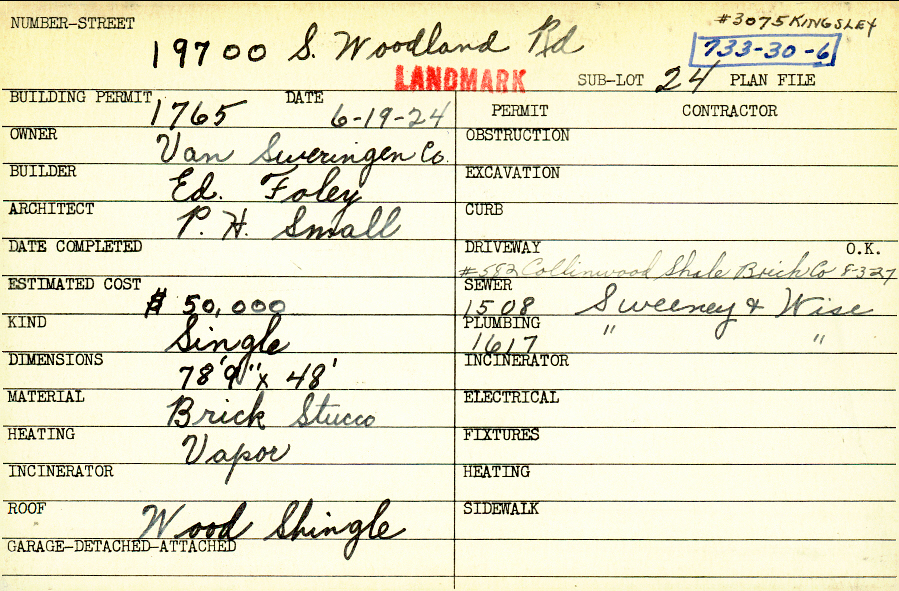 NUMBER-STREET 19700 S. Woodland Rd #3075 KINGSLEY
733-30-6
LANDMARK SUB-LOT 24 PLAN FILE
BUILDING PERMIT 1765 DATE 6-19-24
OWNER Van Sweringen Co.
BUILDER Ed. Foley
ARCHITECT P. H. Small
DATE COMPLETED
ESTIMATED COST $ 50,000
KIND Single
DIMENSIONS 78'9" x 48'
MATERIAL Brick Stucco
HEATING Vapor
INCINERATOR
ROOF Wood Shingle
GARAGE-DETACHED-ATTACHED
PERMIT CONTRACTOR
OBSTRUCTION
EXCAVATION
CURB
DRIVEWAY O.K.
#582 Collinwood Shale Brick Co 8-3-27
SEWER
1508 Sweeney & Wise
PLUMBING " "
1617
INCINERATOR
ELECTRICAL
FIXTURES
HEATING
SIDEWALK